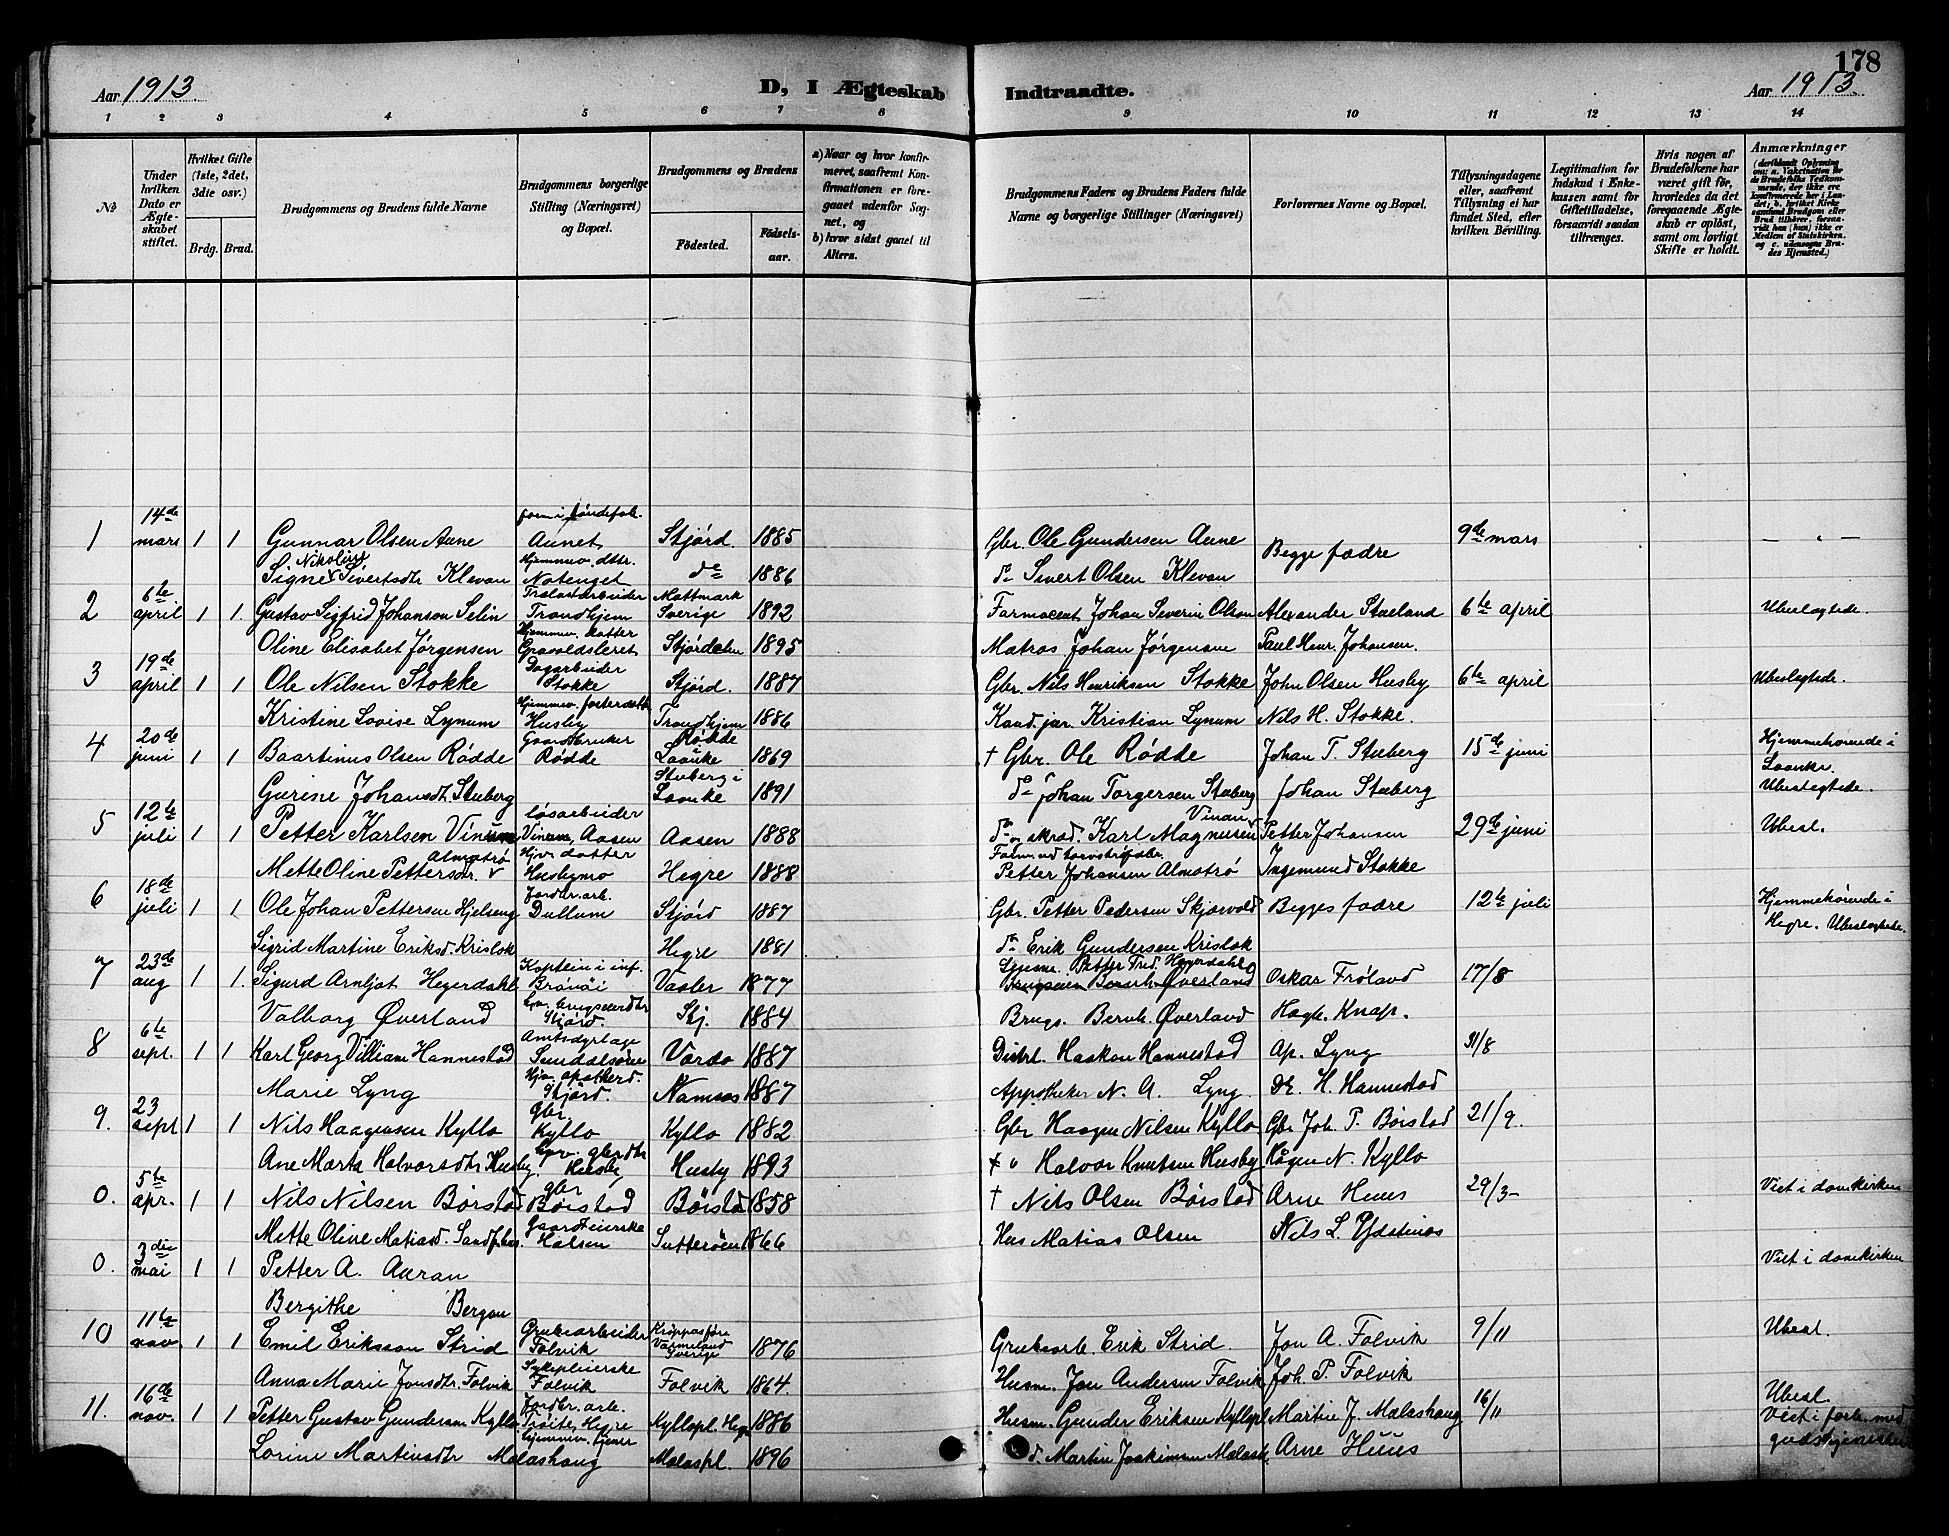 178
Aar 1913.
D, I Ægteskab Indtraadte.
Aar 1913.
1 2 3 4 5 6 7 8 9 10 11 12 13 14
№
Under hvilken Dato er Ægteskabet stiftet.
Hvilket Gifte (1ste, 2det, 3die osv.)
Brdg. Brud.
Brudgommens og Brudens fulde Navne
Brudgommens borgerlige Stilling (Næringsvei) og Bopæl.
Brudgommens og Brudens
Fødested.
Fødselsaar.
a) Naar og hvor konfirmeret, saafremt Konfirmationen er foregaaet udenfor Sognet, og
b) hvor sidst gaaet til Alters.
Brudgommens Faders og Brudens Faders fulde Navne og borgerlige Stillinger (Næringsvei)
Forlovernes Navne og Bopæl.
Tillysningsdagene eller, saafremt Tillysning ei har fundet Sted, efter hvilken Bevilling.
Legitimation for Indskud i Enkekassen samt for Giftetilladelse, forsaavidt saadan tiltrænges.
Hvis nogen af Brudefolkene har været gift før, hvorledes da det foregaaende Ægteskab er opløst, samt om lovligt Skifte er holdt.
Anmærkninger
(deriblandt Oplysning om: a. Vakcination for de Brudefolks Vedkommende, der ikke ere konfirmerede her i Landet; b. hvilket Kirkesamfund Brudgom eller Brud tilhører, forsaavidt han (hun) ikke er Medlem af Statskirken, og c. udensogns Brudes Hjemsted.)
1 14de mars 1 1 Gunnar Olsen Aune Aunet Stjørd. 1885 Gbr. Ole Gundersen Aune Begge fædre 9de mars
Signe Nikoline Sivertsdtr Klevan Hjemmev. dttr. do 1886 do Sivert Olsen Klevan
2 6te april 1 1. Gustav Sigfrid Johanson Selin Trondhjem Mattmark Sverige 1892 Farmaceut Johan Severin Olson Alexander Stueland 6te april Ubeslegtede.
Oline Elisabet Jørgensen Hjemmev. datter Stjørdalen 1895 Matros Johan Jørgensen Paul Henr. Johansen.
3 19de april 1 1 Ole Nilsen Stokke Dagarbeider Stokke Stjørd. 1887 Gbr. Nils Henriksen Stokke John Olsen Husby 6te april Ubeslegtede.
Kristine Lovise Lynum Hjemmev. fosterdatt. Husby Trondhjem 1886 Kand. jur. Kristian Lynum Nils H. Stokke.
4 20de juni 1 1 Baartinus Olsen Rødde Gaardbruker Rødde Rødde Laanke 1869 † Gbr. Ole Rødde Johan T. Stuberg 15de juni Hjemmehørende i Laanke.
Gurine Johansdtr. Stuberg Stuberg i Laanke 1891 do Johan Torgersen Stuberg Johan Stuberg Ubeslegtede.
5 12te juli 1 1 Petter Karlsen Vinum løsarbeider Vinum, Aasen Aasen 1888 do og skræd. Karl Magnussen Vinan Petter Johansen 29de juni Ubesl.
Mette Oline Pettersdtr. Almotrø Hjv. datter Husbymo Hegre 1888 Petter Johansen Almotrø Ingemund Stokke
6 18de juli 1 1 Ole Johan Pettersen Hjelseng Jordbr. arb. Dullum Stjørd 1887 Gbr. Petter Pedersen Skjærvold Begges fædre 12te juli Hjemmehørende i Hegre. Ubeslegtede.
Sigrid Martine Eriksd. Krislok Hegre 1881 do Erik Gundersen Krislok
7 23de aug 1 1. Sigurd Arnljot Hegerdahl Kaptein i inf. Vaaler 1877 Petter Fred. Hegerdahl Oskar Frøland 17/8
Valborg Øverland Stjørd. Stj. 1884 Brugs. Bernh. Øverland Hagb. Knap.
8 6te sept. 1 1 Karl Georg Villiam Hannestad Amtsdyrlæge Sunddalsøren Vardø 1887 Distrl. Haakon Hannestad Ap. Lyng 31/8
Marie Lyng Hjv. apothekerd. Stjørd. Namsos 1887 Appotheker N. A. Lyng. Dr. H. Hannestad
9. 23 sept 1 1 Nils Haagensen Kyllo gbr. Kyllo Kyllo 1882 Gbr Haagen Nilsen Kyllo Gbr Joh. P. Børstad 21/9.
Ane Marta Halvorsdtr Husby. Husby Husby 1893 † " Halvor Knutsen Husby Hågen N. Kyllo
0. 5te apr. 1 1 Nils Nilsen Børstad gbr Børstad Børstad 1858 † Nils Olsen Børstad Arne Huus 29/3 Viet i domkirken
Mette Oline Matiasd. Halsen Sutterøen 1866 Hus Matias Olsen Nils L. Ydstinas
0. 3die mai 1 1 Petter A. Auran Viet i domkirken
Bergithe Bergan
10 11te nov 1 1 Emil Eriksson Strid Grubearbeider Folvik Värmland Sverige 1876 Grubearb. Erik Strid. Jon A. Folvik 9/11 Ubesl.
Anna Marie Jonsdtr. Folvik Sykepleierske Folvik Folvik 1864. Husm. Jon Andersen Folvik Joh. P. Folvik
11. 16de nov. 1 1 Petter Gustav Gundersen Kyllo Jordbr. arb. Trøite, Hegre Kyllopl. Hegre 1886 Husm. Gunder Eriksen Kyllopl Martin J. Malashaug 16/11 Ubesl. Viet i forb. med gudstjenesten
Lorine Martinsdtr Malashaug Hjemmev. tjener Malaspl. 1896 d. Martin Joakimsen Malash. Arne Huus